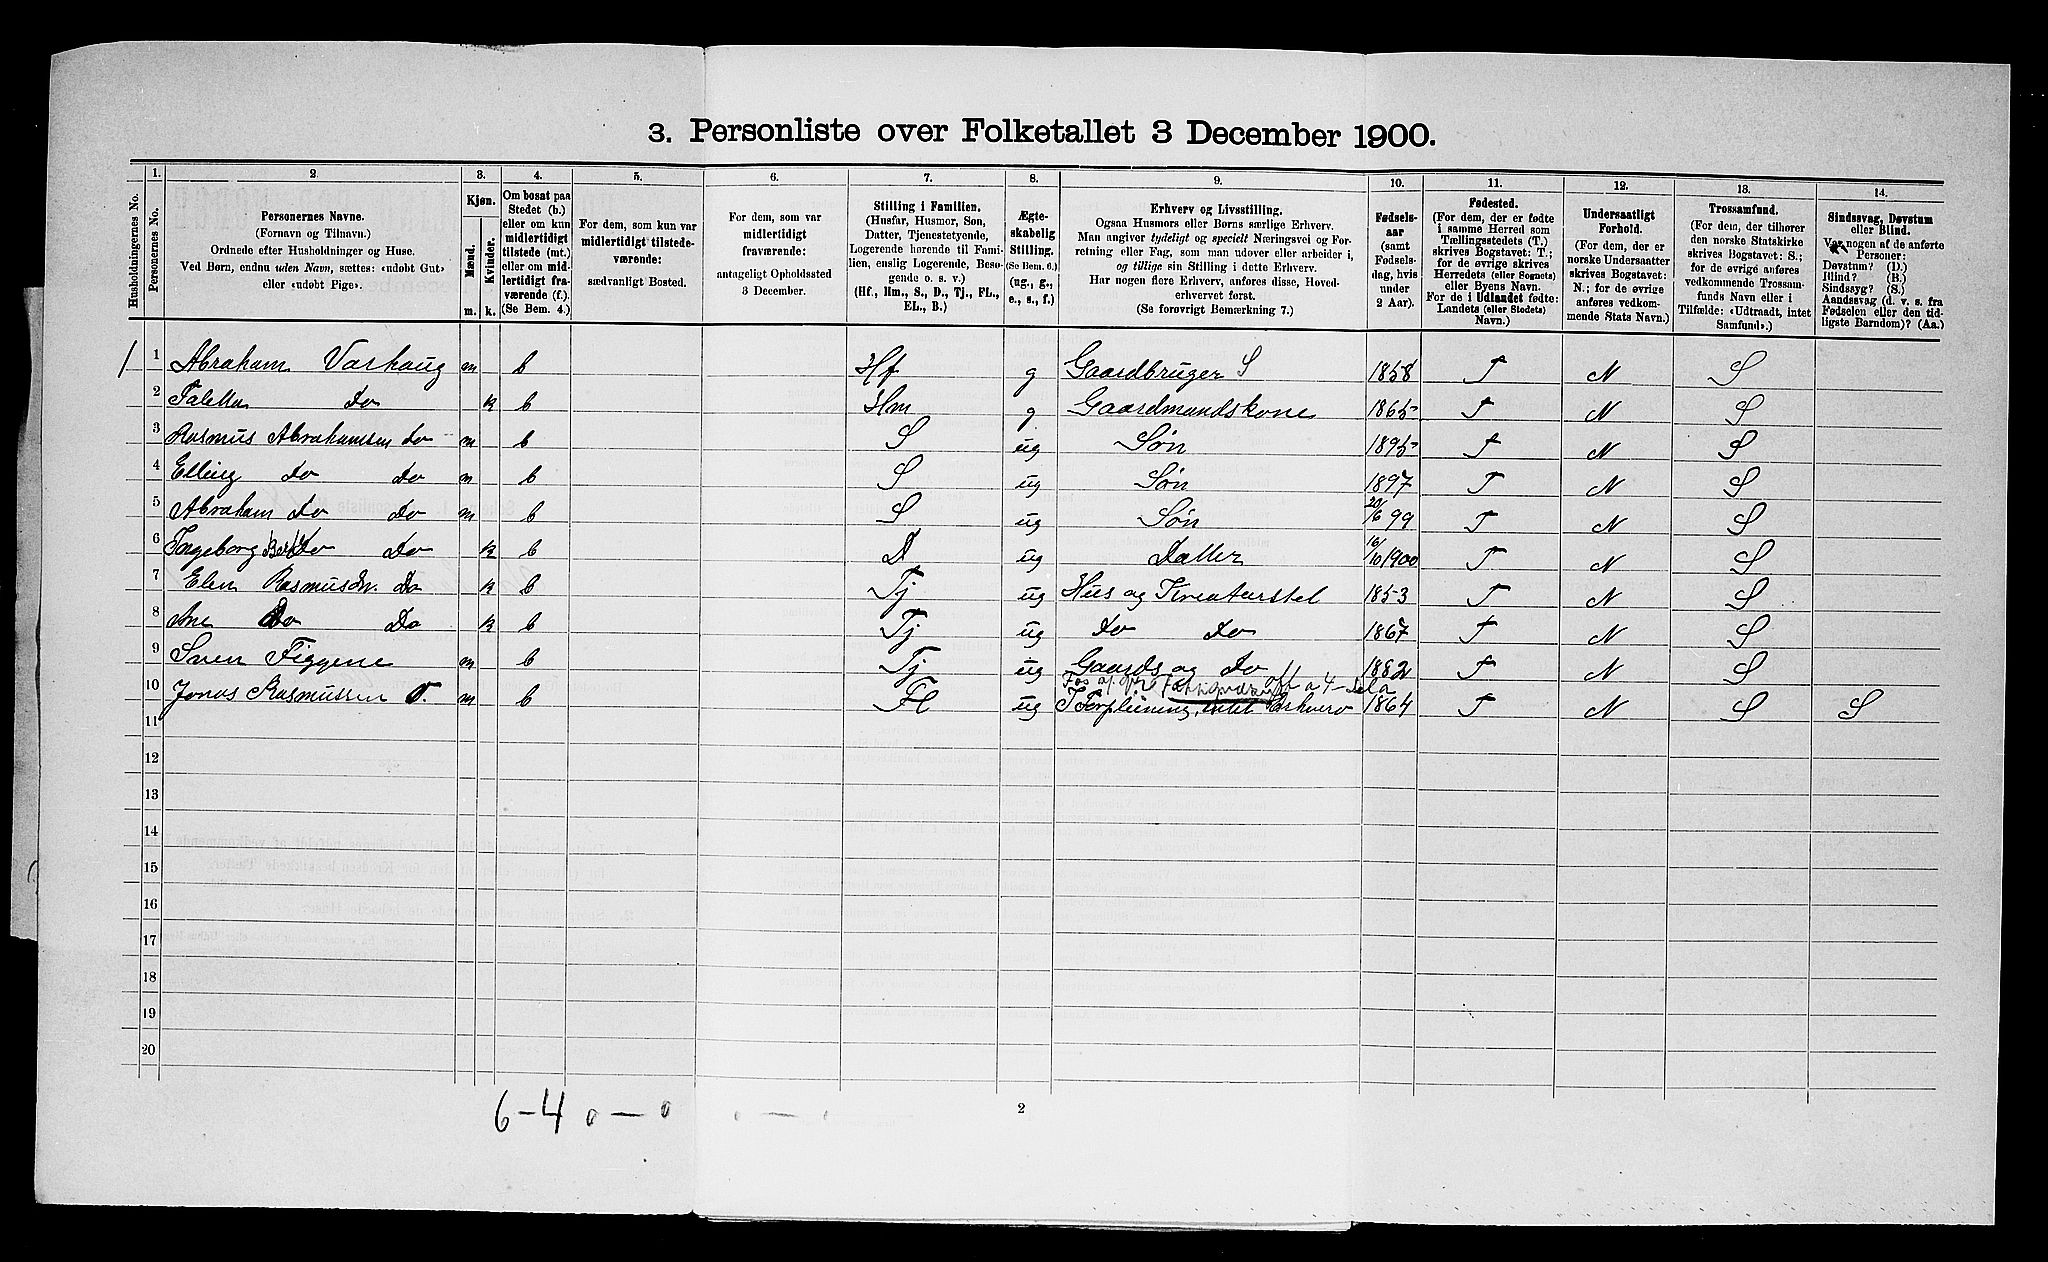 3. Personliste over Folketallet 3 December 1900.
Husholdningernes No.
1.
Personernes No.
2.
Personernes Navne.
(Fornavn og Tilnavn.)
Ordnede efter Husholdninger og Huse.
Ved Børn, endnu uden Navn, sættes: «udøbt Gut»
eller «udøbt Pige».
3.
Kjøn.
Mænd.
Kvinder.
m. k.
4.
Om bosat paa
Stedet (b.)
eller om kun
midlertidigt
tilstede (mt.)
eller om mid-
lertidigt fra-
værende (f.).
(Se Bem. 4.)
5.
For dem, som kun var
midlertidigt tilstede-
værende:
sædvanligt Bosted.
6.
For dem, som var
midlertidigt
fraværende:
antageligt Opholdssted
3 December.
7.
Stilling i Familien.
(Husfar, Husmor, Søn,
Datter, Tjenestetyende,
Logerende hørende til Fami-
lien, enslig Logerende, Besø-
gende o. s. v.)
(Hf., Hm., S., D., Tj., FL.,
EL., B.)
8.
Ægte-
skabelig
Stilling.
(Se Bem. 6.)
(ug., g.,
e., s., f.)
9.
Erhverv og Livsstilling.
Ogsaa Husmors eller Børns særlige Erhverv.
Man angiver tydeligt og specielt Næringsvei og For-
retning eller Fag, som man udøver eller arbeider i,
og tillige sin Stilling i dette Erhverv.
Har nogen flere Erhverv, anføres disse, Hoved-
erhvervet først.
(Se forøvrigt Bemærkning 7.)
10.
Fødsels-
aar
(samt
Fødsels-
dag, hvis
under
2 Aar).
11.
Fødested.
(For dem, der er fødte
i samme Herred som
Tællingsstedets (T.)
skrives Bogstavet: T.;
for de øvrige skrives
Herredets (eller Sognets)
eller Byens Navn.
For de i Udlandet fødte:
Landets (eller Stedets)
Navn.)
12.
Undersaatligt
Forhold.
(For dem, der er
norske Undersaatter
skrives Bogstavet:
N.; for de øvrige
anføres vedkom-
mende Stats Navn.)
13.
Trossamfund.
(For dem, der tilhører
den norske Statskirke
skrives Bogstavet: S.;
for de øvrige anføres
vedkommende Trossam-
funds Navn eller i
Tilfælde: «Udtraadt, intet
Samfund».)
14.
Sindssvag, Døvstum
eller Blind.
Var nogen af de anførte
Personer:
Døvstum? (D.)
Blind? (B.)
Sindssyg? (S.)
Aandssvag (d. v. s. fra
Fødselen eller den tid-
ligste Barndom)? (Aa.)
1 1 Abraham Varhaug m b Hf g Gaardbruger S 1858 T N S
2 Taletta do k b Hm g Gaardmandskone 1865 T N S
3 Rasmus Abrahamsen do m b S ug Søn 1895 T N S
4 Elling do do m b S ug Søn 1897 T N S
5 Abraham do do m b S ug Søn 20/6 99 T N S
6 Ingeborg do do k b D ug Datter 16/10 1900 T N S
7 Elen Rasmusdr. do k b Tj ug Hus og Kreaturstel 1853 T N S
8 Ane do do k b Tj ug do do 1867 T N S
9 Sven Figgene m b Tj ug Gaards og do 1882 T N S
10 Jonas Rasmussen V. m b Fl ug I Forpleining, intet Erhverv 1864 T N S S
11
12
13
14
15
16
17
18
19
20
6-4 0-0 0-0
2